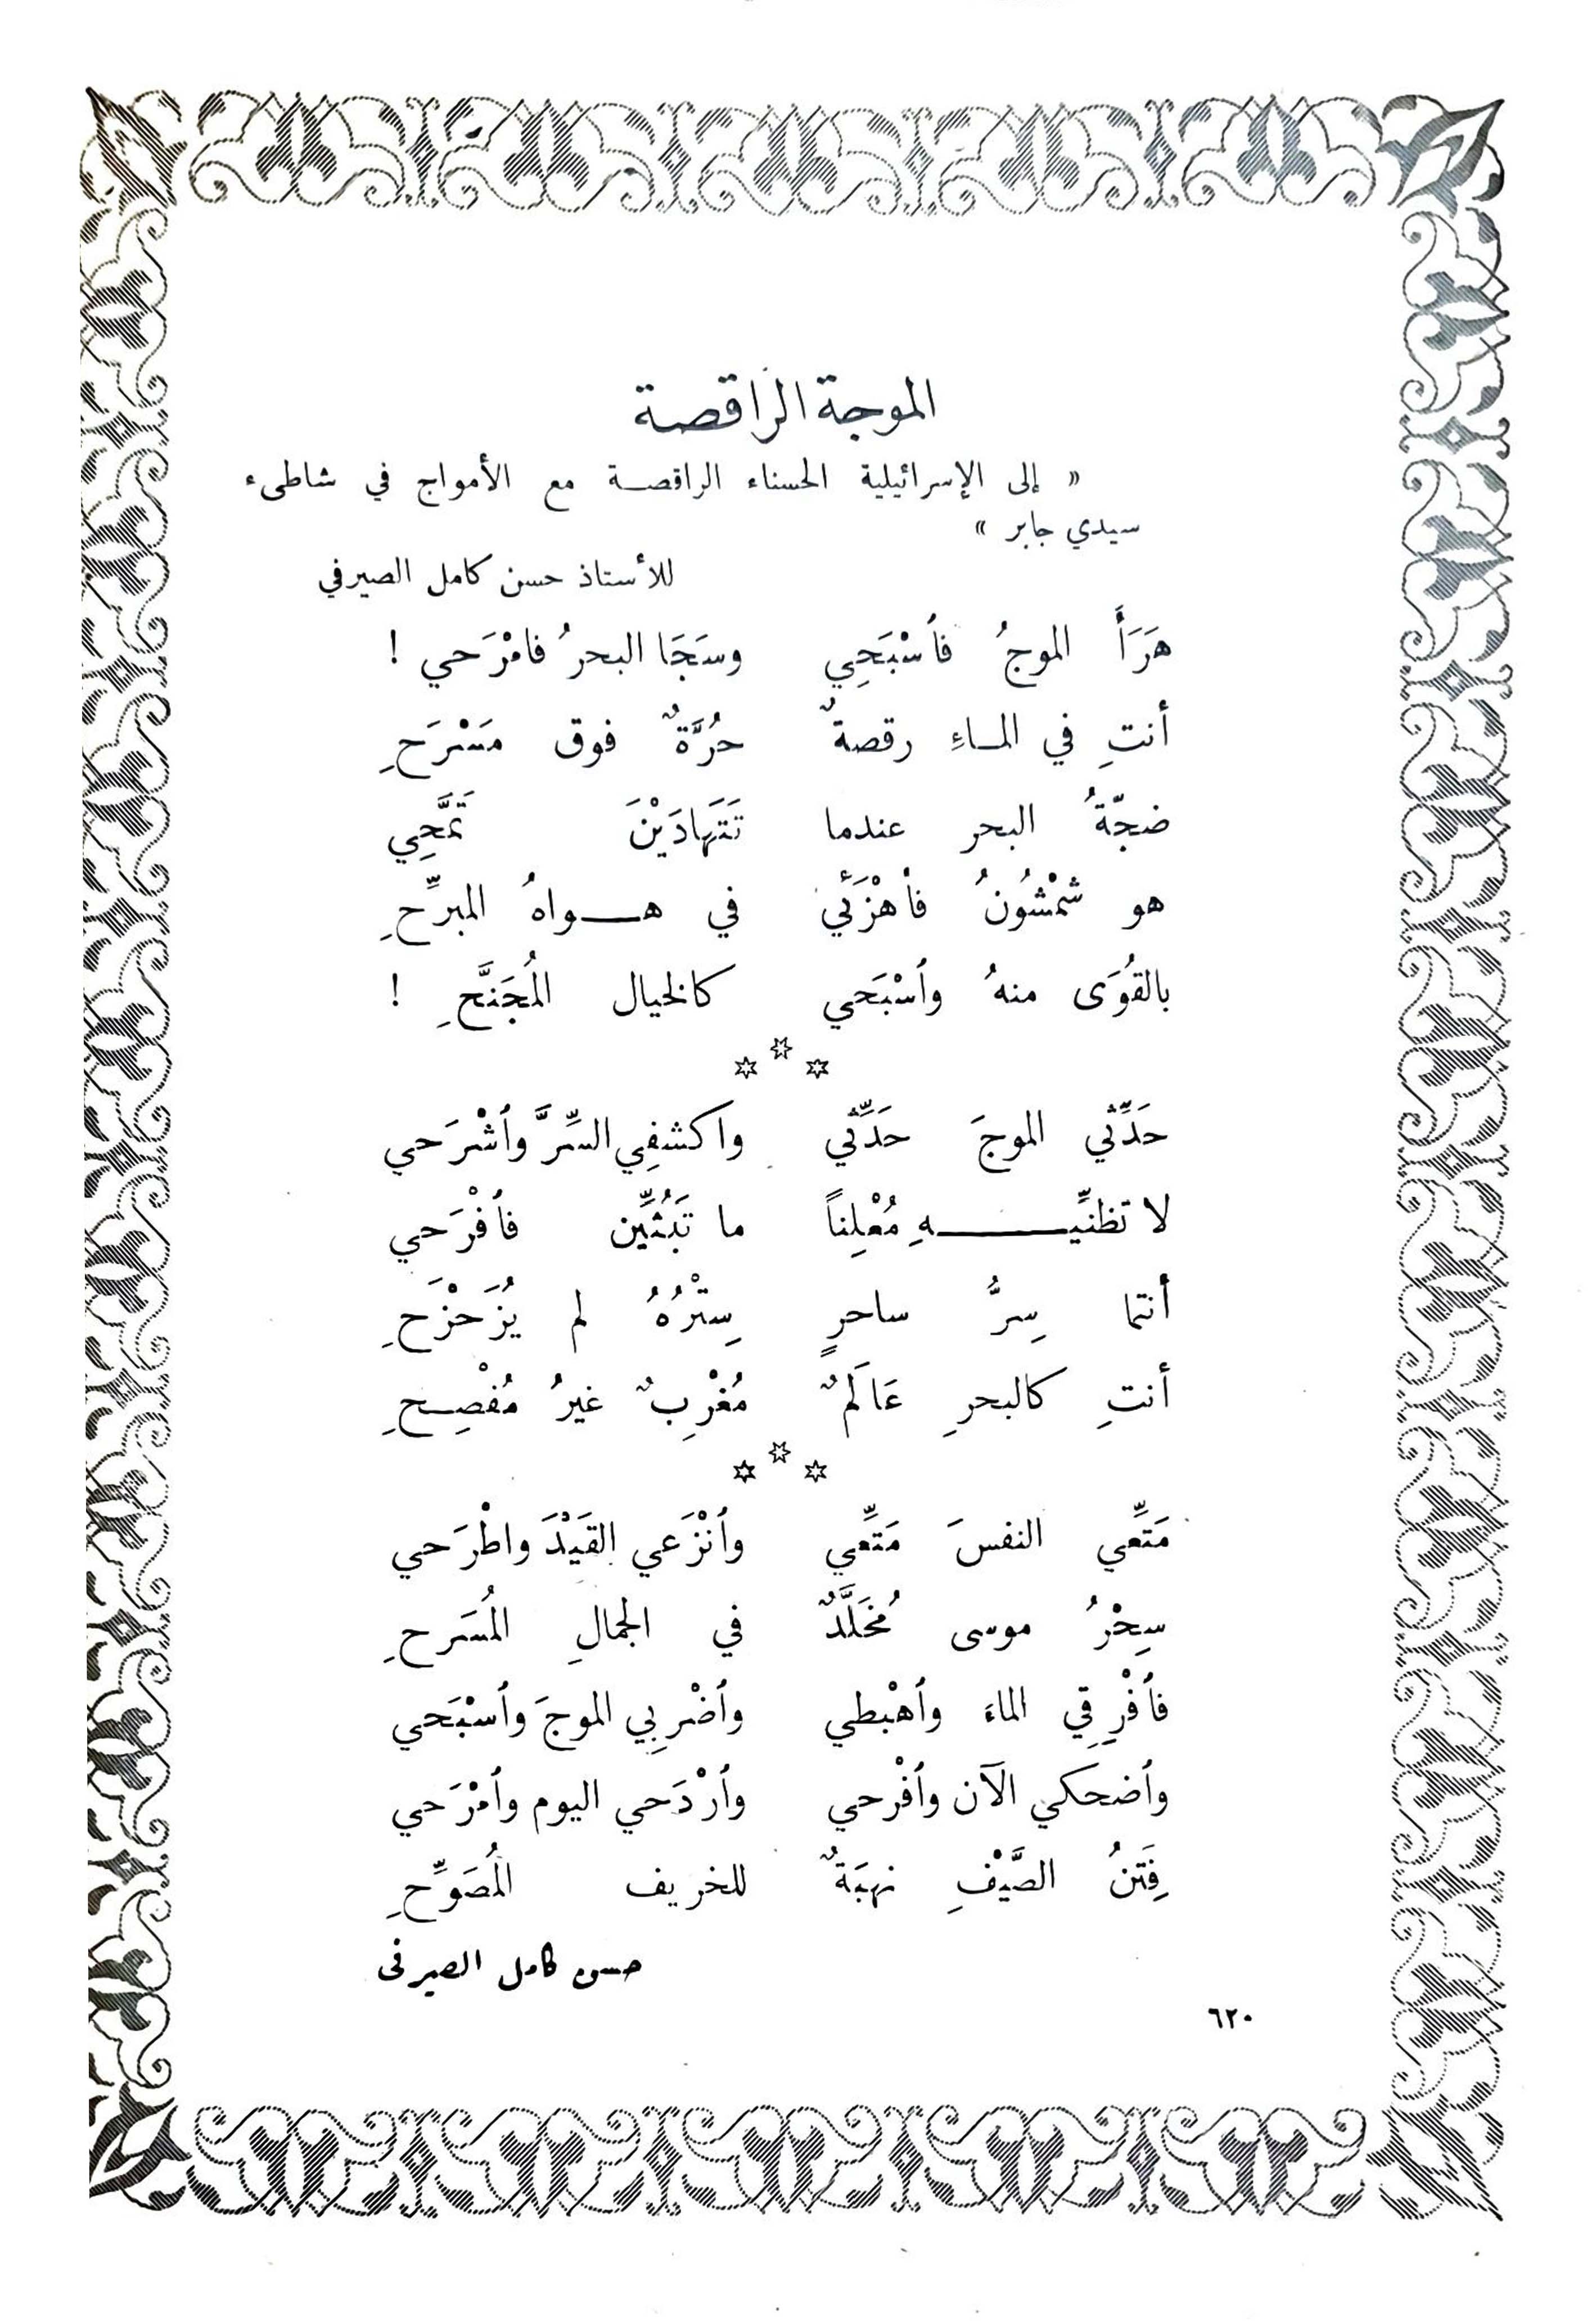 الموجة الراقصة
« إلى الإسرائيلية الحسناء الراقصة مع الأمواج في شاطىء
سيدي جابر »
للأستاذ حسن كامل الصيرفي
هَرَأَ الموجُ فاُسْبَحِي وسَجَا البحرُ فامْرَحي !
أنتِ في الماءِ رقصةٌ حُرَّةٌ فوق مَسْرَحِ
ضجّةُ البحر عندما تَتَهادَيْنَ تَمَّحِي
هو شَمْشُونُ فاُهْزَئي في هواهُ المبرِّحِ
بالقُوَى منهُ واُسْبَحي كالخيال المُجَنَّحِ !
حَدِّثي الموجَ حَدِّثي واكشفِي السِّرَّ واُشْرَحي
لا تظنِّيهِ مُعْلِناً ما تَبُثِّين فاُفْرَحي
أنتما سِرُّ ساحرٍ سِتْرُهُ لم يُزَحْزَحِ
أنتِ كالبحرِ عَالَمٌ مُغْرِبٌ غيرُ مُفْصِحِ
مَتِّعي النفسَ مَتِّعي واُنْزَعي القَيْدَ واطْرَحي
سِحْرُ موسى مُخَلَّدٌ في الجمالِ المُسَرحِ
فاُفْرِقي الماءَ واُهْبطي واُضْرِبي الموجَ واُسْبَحي
واُضحكي الآن واُفْرحي واُرْدَحي اليوم واُمْرَحي
فِتَنُ الصَّيْفِ نهبَةٌ للخريف المُصَوِّحِ
حسن كامل الصيرفى
٦٢٠